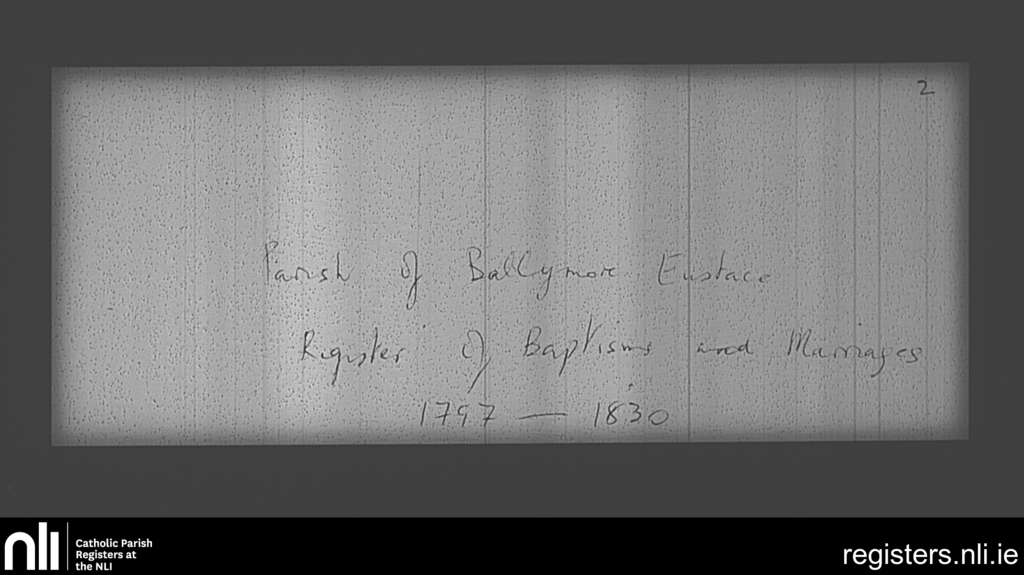 2
Parish of Ballymore Eustace
Register of Baptisms and Marriages
1797 — 1830
nli
Catholic Parish
Registers at
the NLI
registers.nli.ie